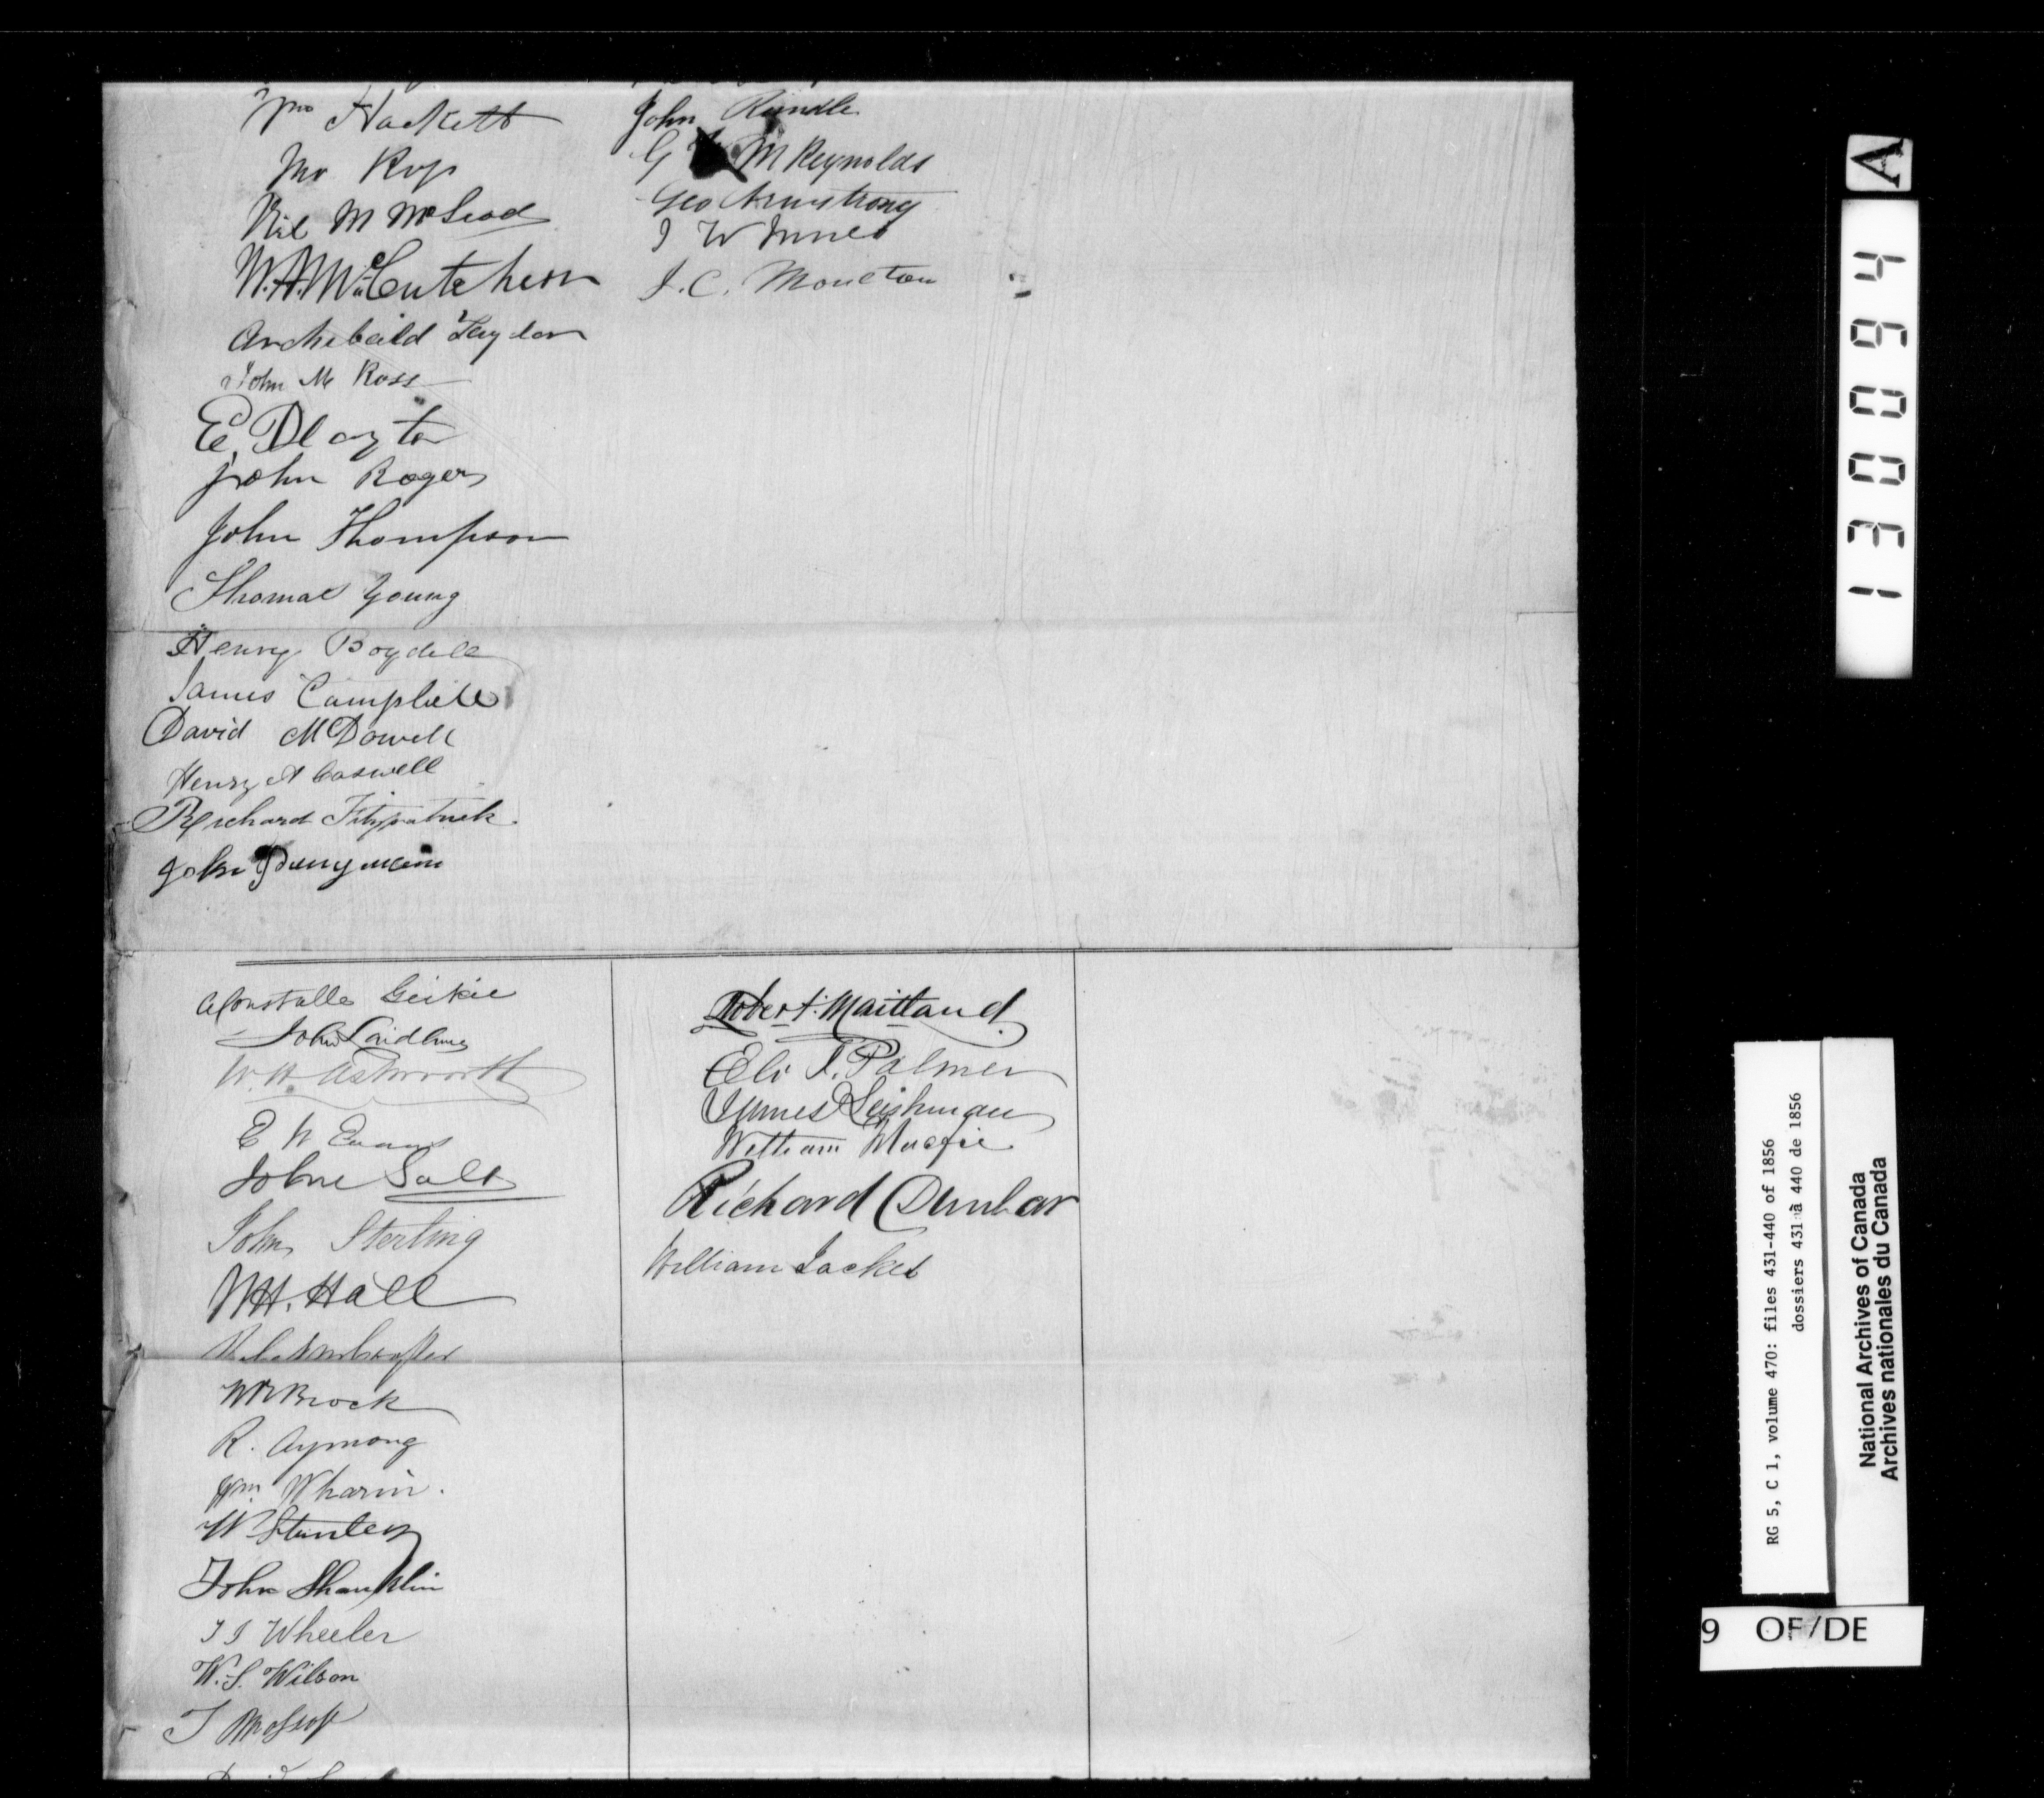 Hackett
Ross
McLeod
W.A. McCutcheon
Archibald Taylor
John Mc Ross
E.
John Rogers
John Thompson
Thomas Young
Henry Boydell
James Campbell
David McDowell
Henry A Caswell
Richard Fitzpatrick.
John
John Rundle
G M Reynolds
Geo Armstrong
J W Innes
J. C. Moulton
A Constable Geikie
John Laidlaw
W. H. Ashworth
E W Evans
John Salt
John Sterling
W H. Hall
W R Brock
R. Aymong
Wm Wharin.
W Stanley
John Shanklin
T J Wheeler
W. S. Wilson
T Mossop
Robert Maitland
Eli J. Palmer
James Leishman
William Macfie
Richard Dunbar
William Jacket
A
130094
RG 5, C 1, volume 470: files 431-440 of 1856
dossiers 431 à 440 de 1856
National Archives of Canada
Archives nationales du Canada
9 OF/DE